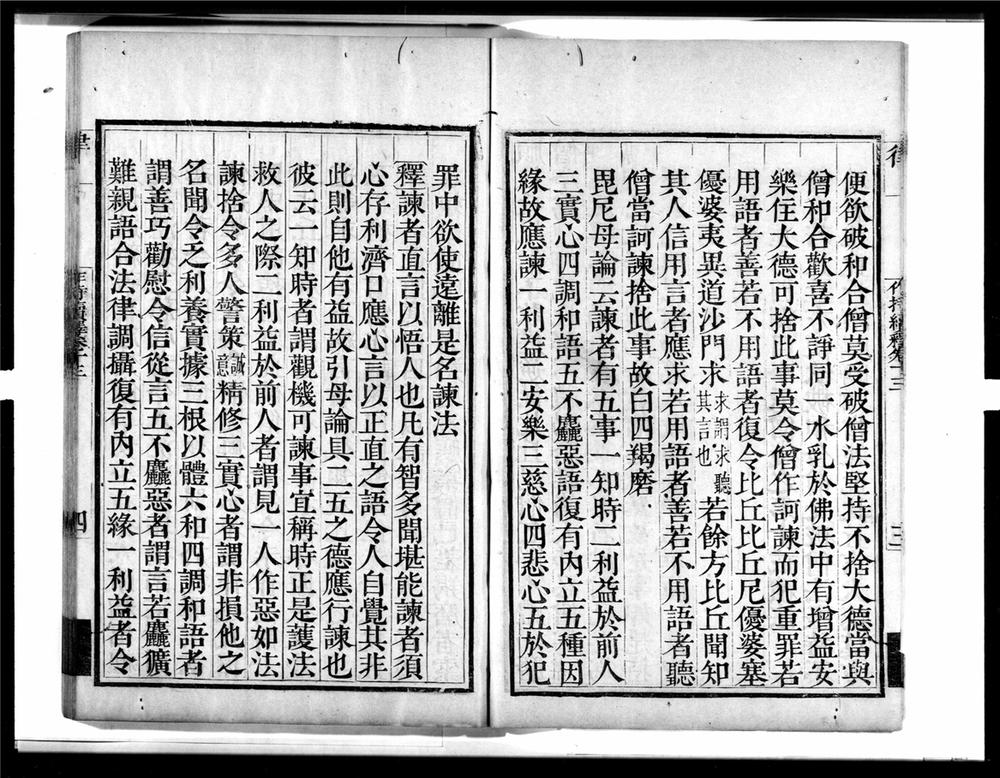 便欲破和合僧莫受破僧法堅持不捨大德當與
僧和合歡喜不諍同一水乳於佛法中有增益安
樂住大德可捨此事莫令僧作訶諫而犯重罪若
用語者善若不用語者復令比丘比丘尼優婆塞
優婆夷異道沙門求求謂求聽其言也若餘方比丘聞知
其人信用言者應求若用語者善若不用語者聽
僧當訶諫捨此事故白四羯磨
毘尼母論云諫者有五事一知時二利益於前人
三實心四調和語五不麤惡語復有內立五種因
緣故應諫一利益二安樂三慈心四悲心五於犯
罪中欲使遠離是名諫法
釋諫者直言以悟人也凡有智多聞堪能諫者須
心存利濟口應心言以正直之語令人自覺其非
此則自他有益故引母論具二五之德應行諫也
彼云一知時者謂觀機可諫事宜稱時正是護法
救人之際二利益於前人者謂見一人作惡如法
諫捨令多人警策誠意精修三實心者謂非損他之
名聞令乏利養實據三根以體六和四調和語者
謂善巧勸慰令信從言五不麤惡者謂言若麤獷
難親語合法律調攝復有內立五緣一利益者令
律
四
三